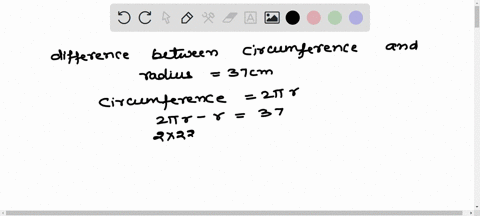 difference between circumference and
radius = 37cm
Circumference = 2πr
2πr - r = 37
2×22